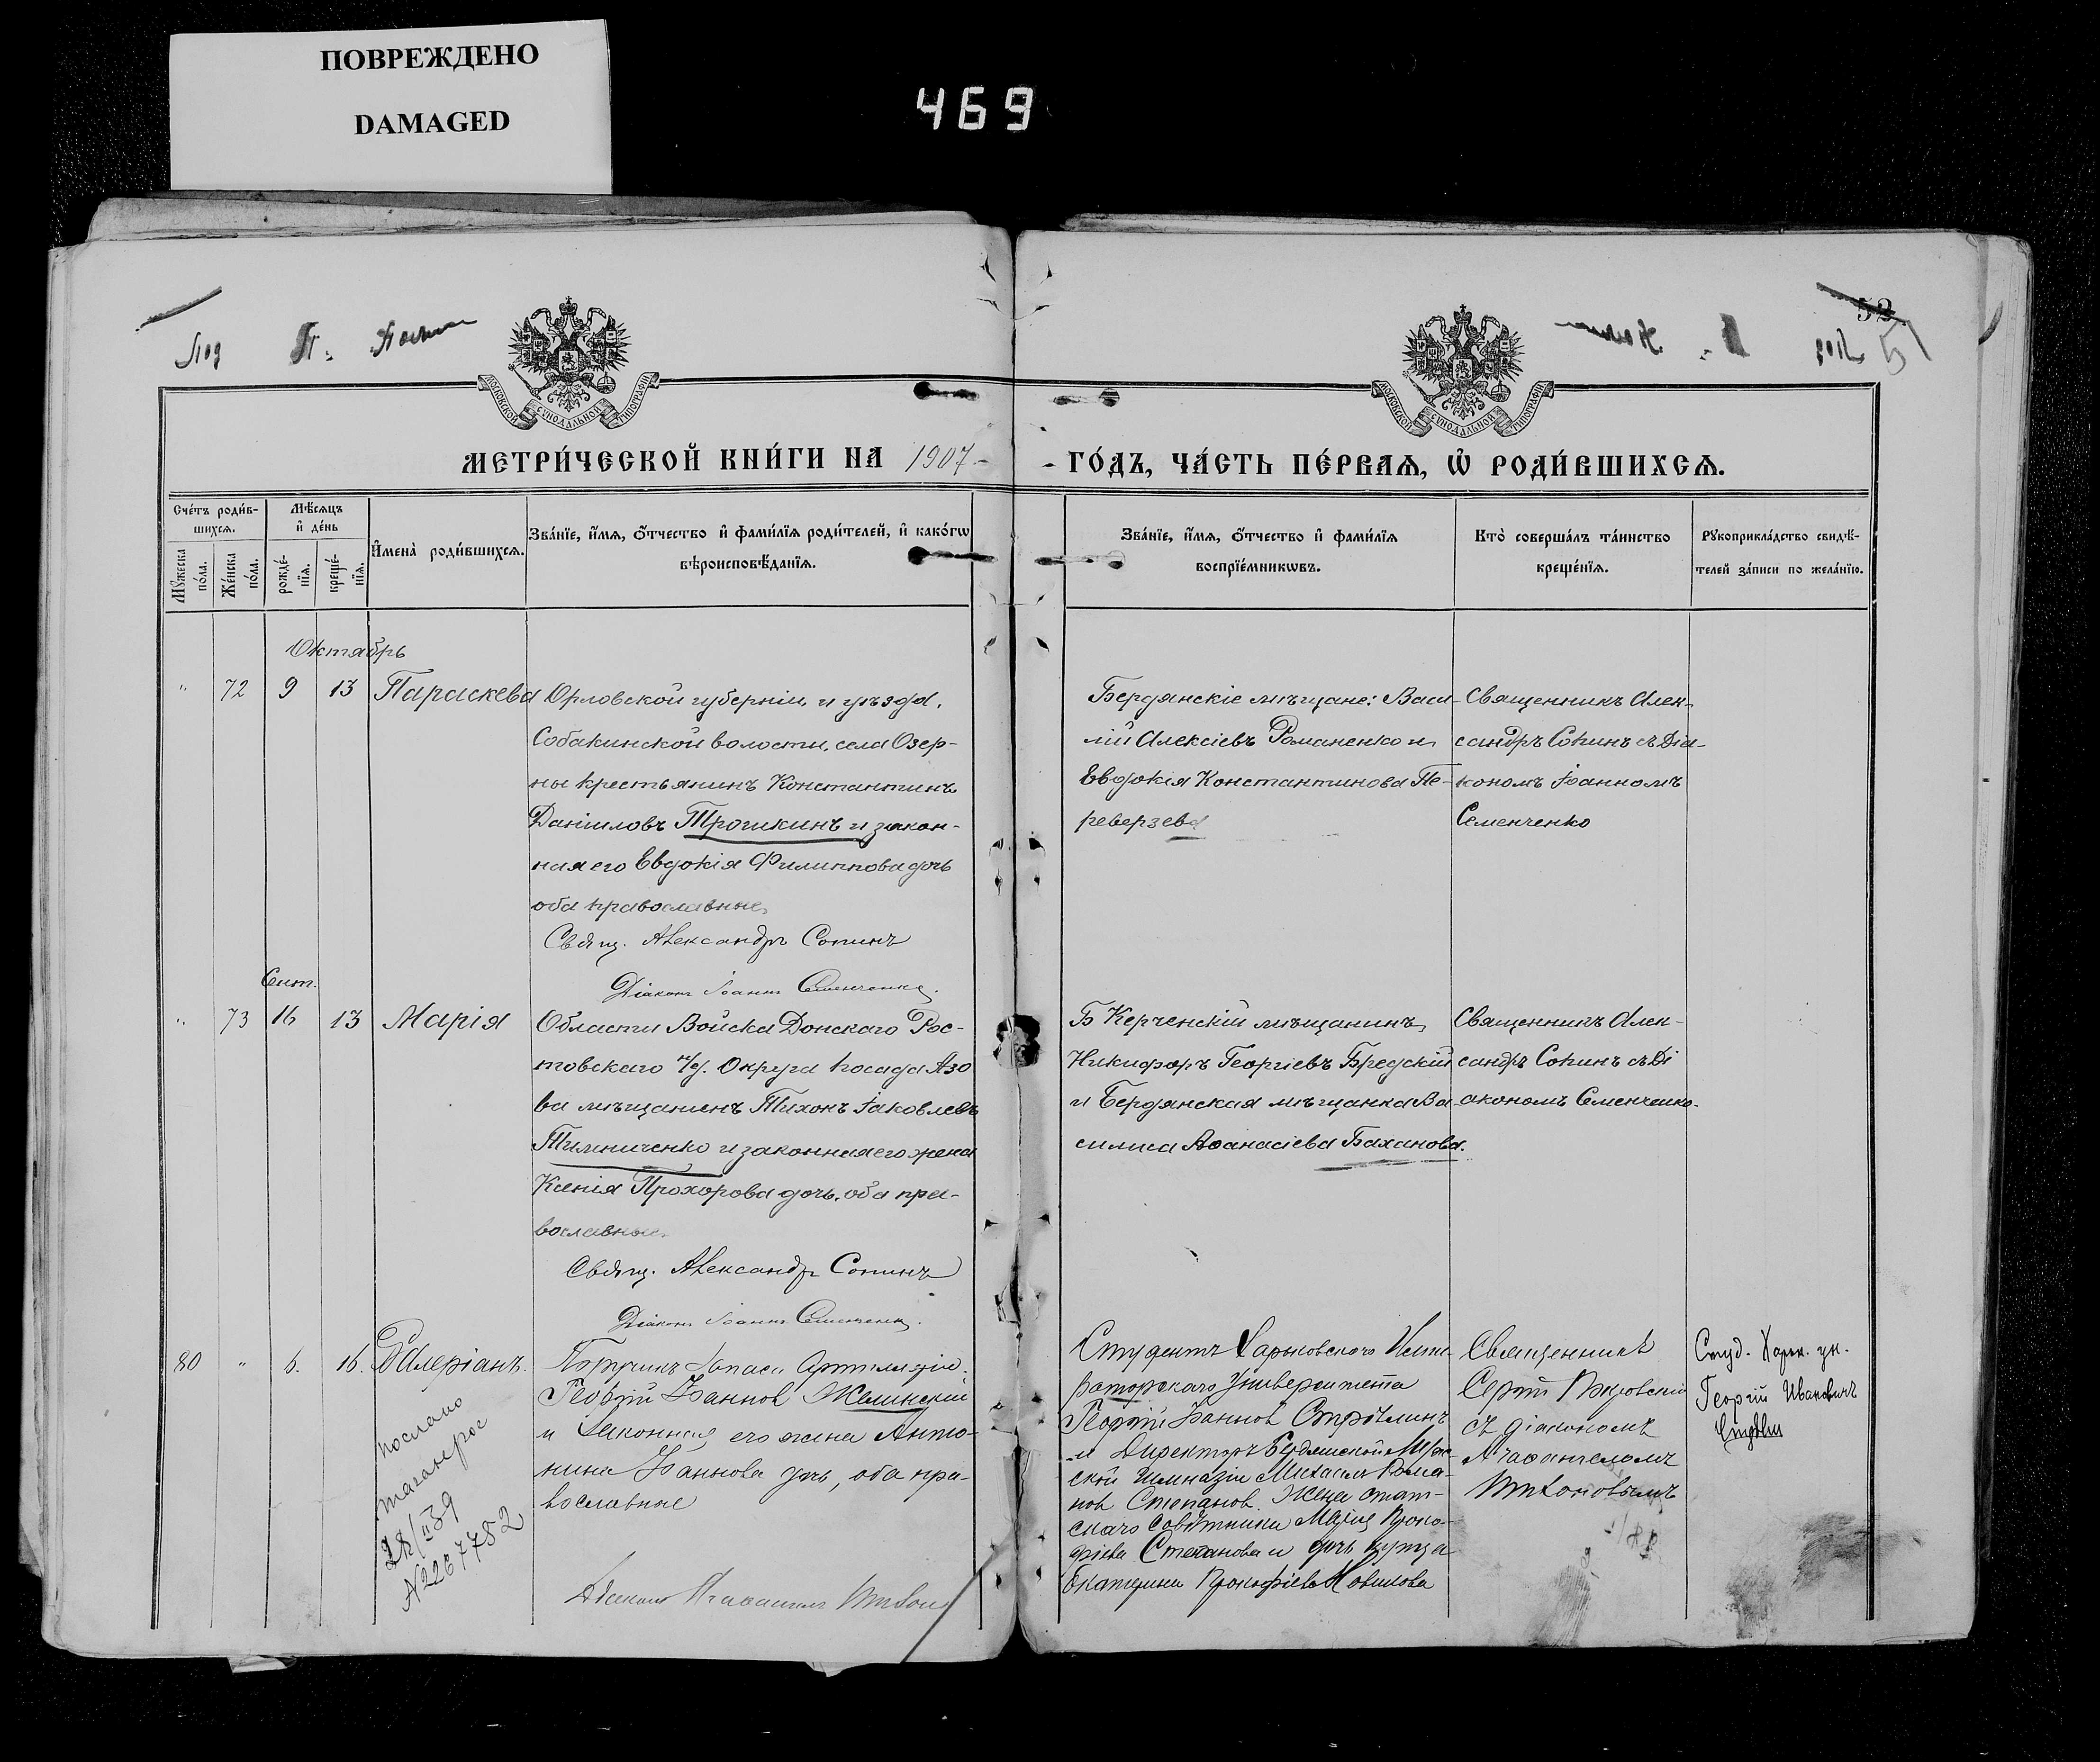 ПОВРЕЖДЕНО
DAMAGED
469
52
МОСКОВСКОЙ СѴНОДАЛЬНОЙ ТИПОГРАФІИ
МОСКОВСКОЙ СѴНОДАЛЬНОЙ ТИПОГРАФІИ
МЕТРИ́ЧЕСКОЙ КНИ́ГИ НА 1907
ГО́ДЪ, ЧА́СТЬ ПЕ́РВАѦ, Ѡ҆ РОДИ́ВШИХСѦ.
Сче́тъ роди́в-
шихсѧ.
Мꙋ́жеска
по́ла.
Же́нска
по́ла.
Мѣ́сѧцъ
и҆ де́нь
рожде́-
нїѧ.
креще́-
нїѧ.
И҆мена̀ роди́вшихсѧ.
Зва́нїе, и҆́мѧ, ѻ҆́тчество и҆ фами́лїѧ роди́телей, и҆ како́гѡ
вѣроисповѣ́данїѧ.
Зва́нїе, и҆́мѧ, ѻ҆́тчество и҆ фами́лїѧ
воспрїе́мникѡвъ.
Кто̀ соверша́лъ та́инство
креще́нїѧ.
Рꙋкоприкла́дство свидѣ́-
телей за́писи по жела́нїю.
Октябрь
" 72 9 13 Параскева
Орловской губерніи и уѣзда,
Собакинской волости, села Озер-
ны крестьянинъ Константинъ
Даніиловъ Трошкинъ и закон-
ная его Евдокія Филиппова дочь
оба православные.
Свящ. Александръ Сопинъ
Діаконъ Іоаннъ Семенченко.
Бердянскіе мѣщане: Васи-
лій Алексіевъ Романенко и
Евдокія Константинова Пе-
реверзева
Священникъ Алек-
сандръ Сопинъ съ Діа-
кономъ Іоанномъ
Семенченко
Сент.
" 73 16 13 Марія
Области Войска Донскаго Рос-
товскаго н/д. Округа посада Азо
ва мѣщанинъ Тихонъ Іаковлевъ
Тимниченко и законная его жена
Ксенія Прохорова дочь, оба пра-
вославные.
Свящ. Александръ Сопинъ
Діаконъ Іоаннъ Семенченко.
Б Керченскій мѣщанинъ
Никифоръ Георгіевъ Бредскій
и Бердянская мѣщанка Ва
силиса Аѳанасіева Баханова.
Священникъ Алек-
сандръ Сопинъ съ Ді
акономъ Семенченко.
80 " 6. 16. Валеріанъ.
послано
таганрог
28/II 39
N2267782
Поручикъ Запаса Артиллеріи
Георгій Іаннов Желинскій
и законная его жена Анто-
нина Іаннова дочь, оба пра-
вославные
Діаконъ
Студентъ Харьковскаго Импе-
раторскаго Университета
Георгій Іаннов Стрѣлинъ
и Директоръ Бердянской Муж-
ской Гимназіи Михаилъ Рома-
нов Степанов. Жена стат-
скаго совѣтника Марія Проко-
фіева Степанова и дочь купца
Екатерина Прокофіева Новикова
Священникъ
Сергій Покровскій
съ діакономъ
Агаѳангеломъ
Тихоновымъ
Студ. Харьк. ун.
Георгій Иванович